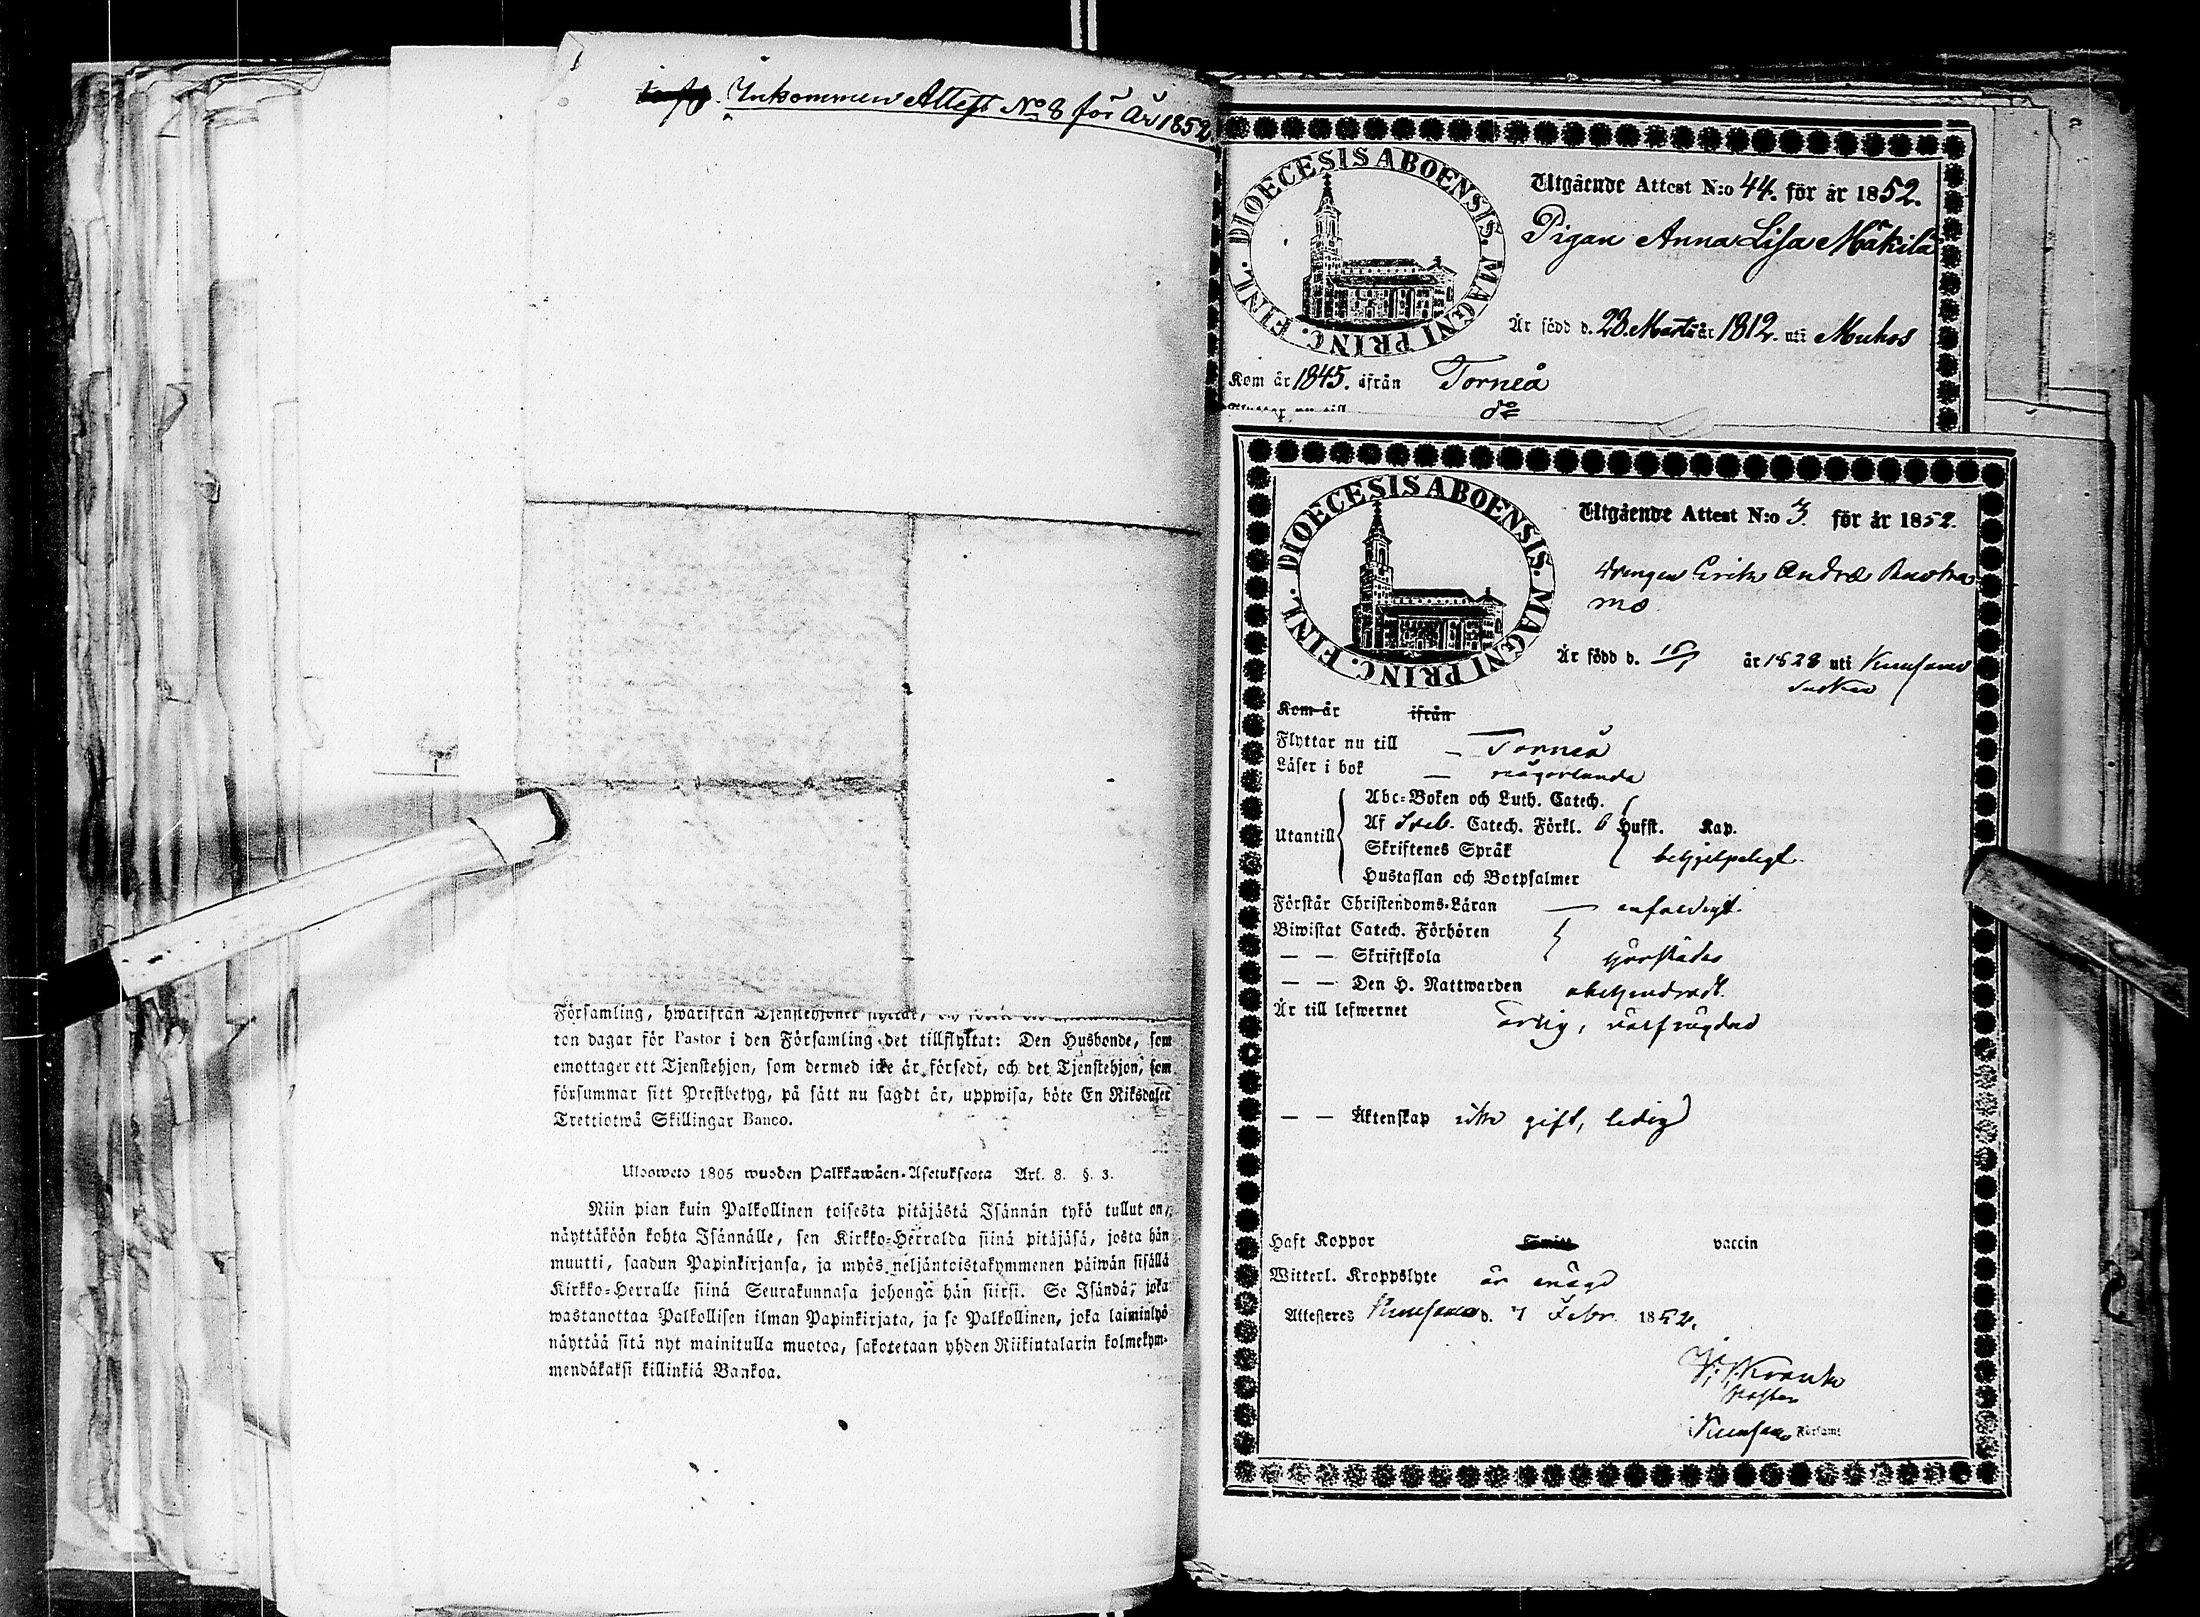 Inkommen Attest No 8 för År 1852
Församling, hwarifrån Tjenstehjonet flyttat,
ton dagar för Pastor i den Församling det tillflyttat: Den Husbonde, som
emottager ett Tjenstehjon, som dermed icke är försedt, och det Tjenstehjon, som
försummar sitt Prestbetyg, på sätt nu sagdt är, uppwisa, böte En Riksdaler
Trettiotwå Skillingar Banco.
Ulosweto 1805 wuoden Palkkawäen-Asetuksesta Art. 8. §. 3.
Niin pian kuin Palkollinen toisesta pitäjästä Isännän tykö tullut on,
näyttäköön kohta Isännälle, sen Kirkko-Herralda siinä pitäjäsä, josta hän
muutti, saadun Papinkirjansa, ja myös neljäntoistakymmenen päiwän sisällä
Kirkko-Herralle siinä Seurakunnasa johonga hän siirsi. Se Isändä, joka
wastanottaa Palkollisen ilman Papinkirjata, ja se Palkollinen, joka laiminlyö
näyttää sitä nyt mainitulla muotoa, sakotetaan yhden Riikintalarin kolmekym-
mendäkaksi killinkiä Bankoa.
DIOECESIS ABOENSIS. MAGNI PRINC. FINL.
Utgående Attest N:o 44. för år 1852.
Pigan Anna Lisa Mäkilä
Är född d. 23 Martii år 1812. uti Muhos
Kom år 1845. ifrån Torneå
Flyttar nu till do
DIOECESIS ABOENSIS. MAGNI PRINC. FINL.
Utgående Attest N:o 3. för år 1852.
Drengen Erik Andrae
mo
Är född d. år 1828 uti Kuusamo
Socken
Kom år ifrån
Flyttar nu till – Torneå
Läser i bok – någorlunda
Abc-Boken och Luth. Catech.
Utantill Af Sveb. Catech. Förkl. 6 Hufst. Kap.
Skriftenes Språk behjelpeligt
Hustaflan och Botpsalmer
Förstår Christendoms-Läran — enfaldigt
Biwistat Catech. Förhören
— — Skriftskola
— — Den H. Nattwarden obehindradt
Är till lefwernet ärlig, välfrägdad
— — Äktenskap icke gift, ledig
Haft Koppor vaccin
Witterl. Kroppslyte är enögd
Attesteres Kuusamo d. 7 Febr. 1852.
Pastor
Kuusamo Församl.